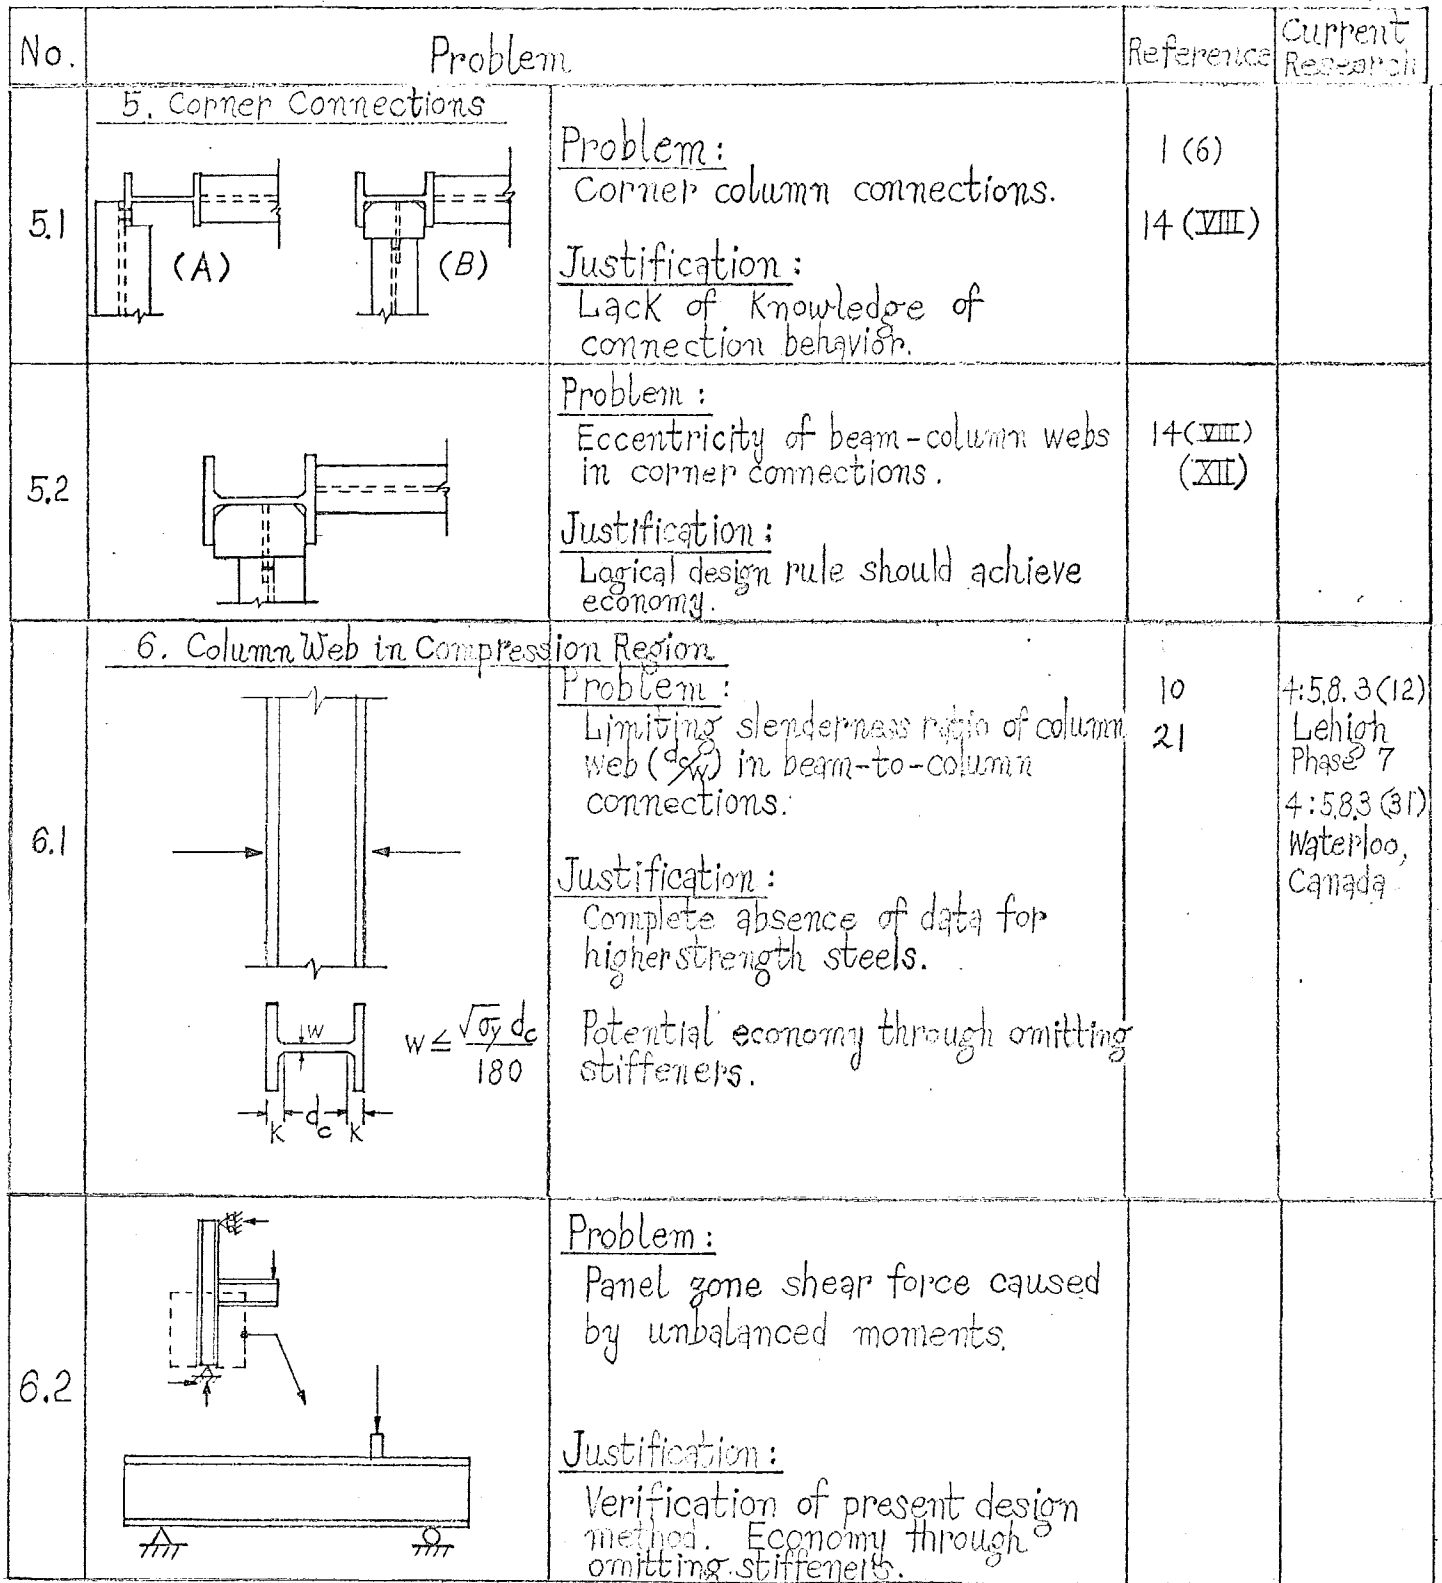 No.
Problem
Reference
Current
Research
5. Corner Connections
5.1
(A)
(B)
Problem:
Corner column connections.
Justification:
Lack of Knowledge of
connection behavior.
1 (6)
14 (VIII)
5.2
Problem:
Eccentricity of beam-column webs
in corner connections.
Justification:
Logical design rule should achieve
economy.
14(VIII)
(XII)
6. Column Web in Compression Region
6.1
w
w ≤ √σy dc / 180
k
dc
k
Problem:
Limiting slenderness ratio of column
web (dc/w) in beam-to-column
connections.
Justification:
Complete absence of data for
higher strength steels.
Potential economy through omitting
stiffeners.
10
21
4:5.8.3(12)
Lehigh
Phase 7
4:5.8.3(31)
Waterloo,
Canada
6.2
Problem:
Panel zone shear force caused
by unbalanced moments.
Justification:
Verification of present design
method. Economy through
omitting stiffeners.